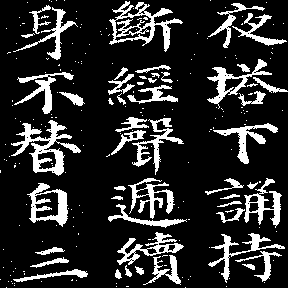 夜塔下誦持
斷經聲遞續
身不替自三